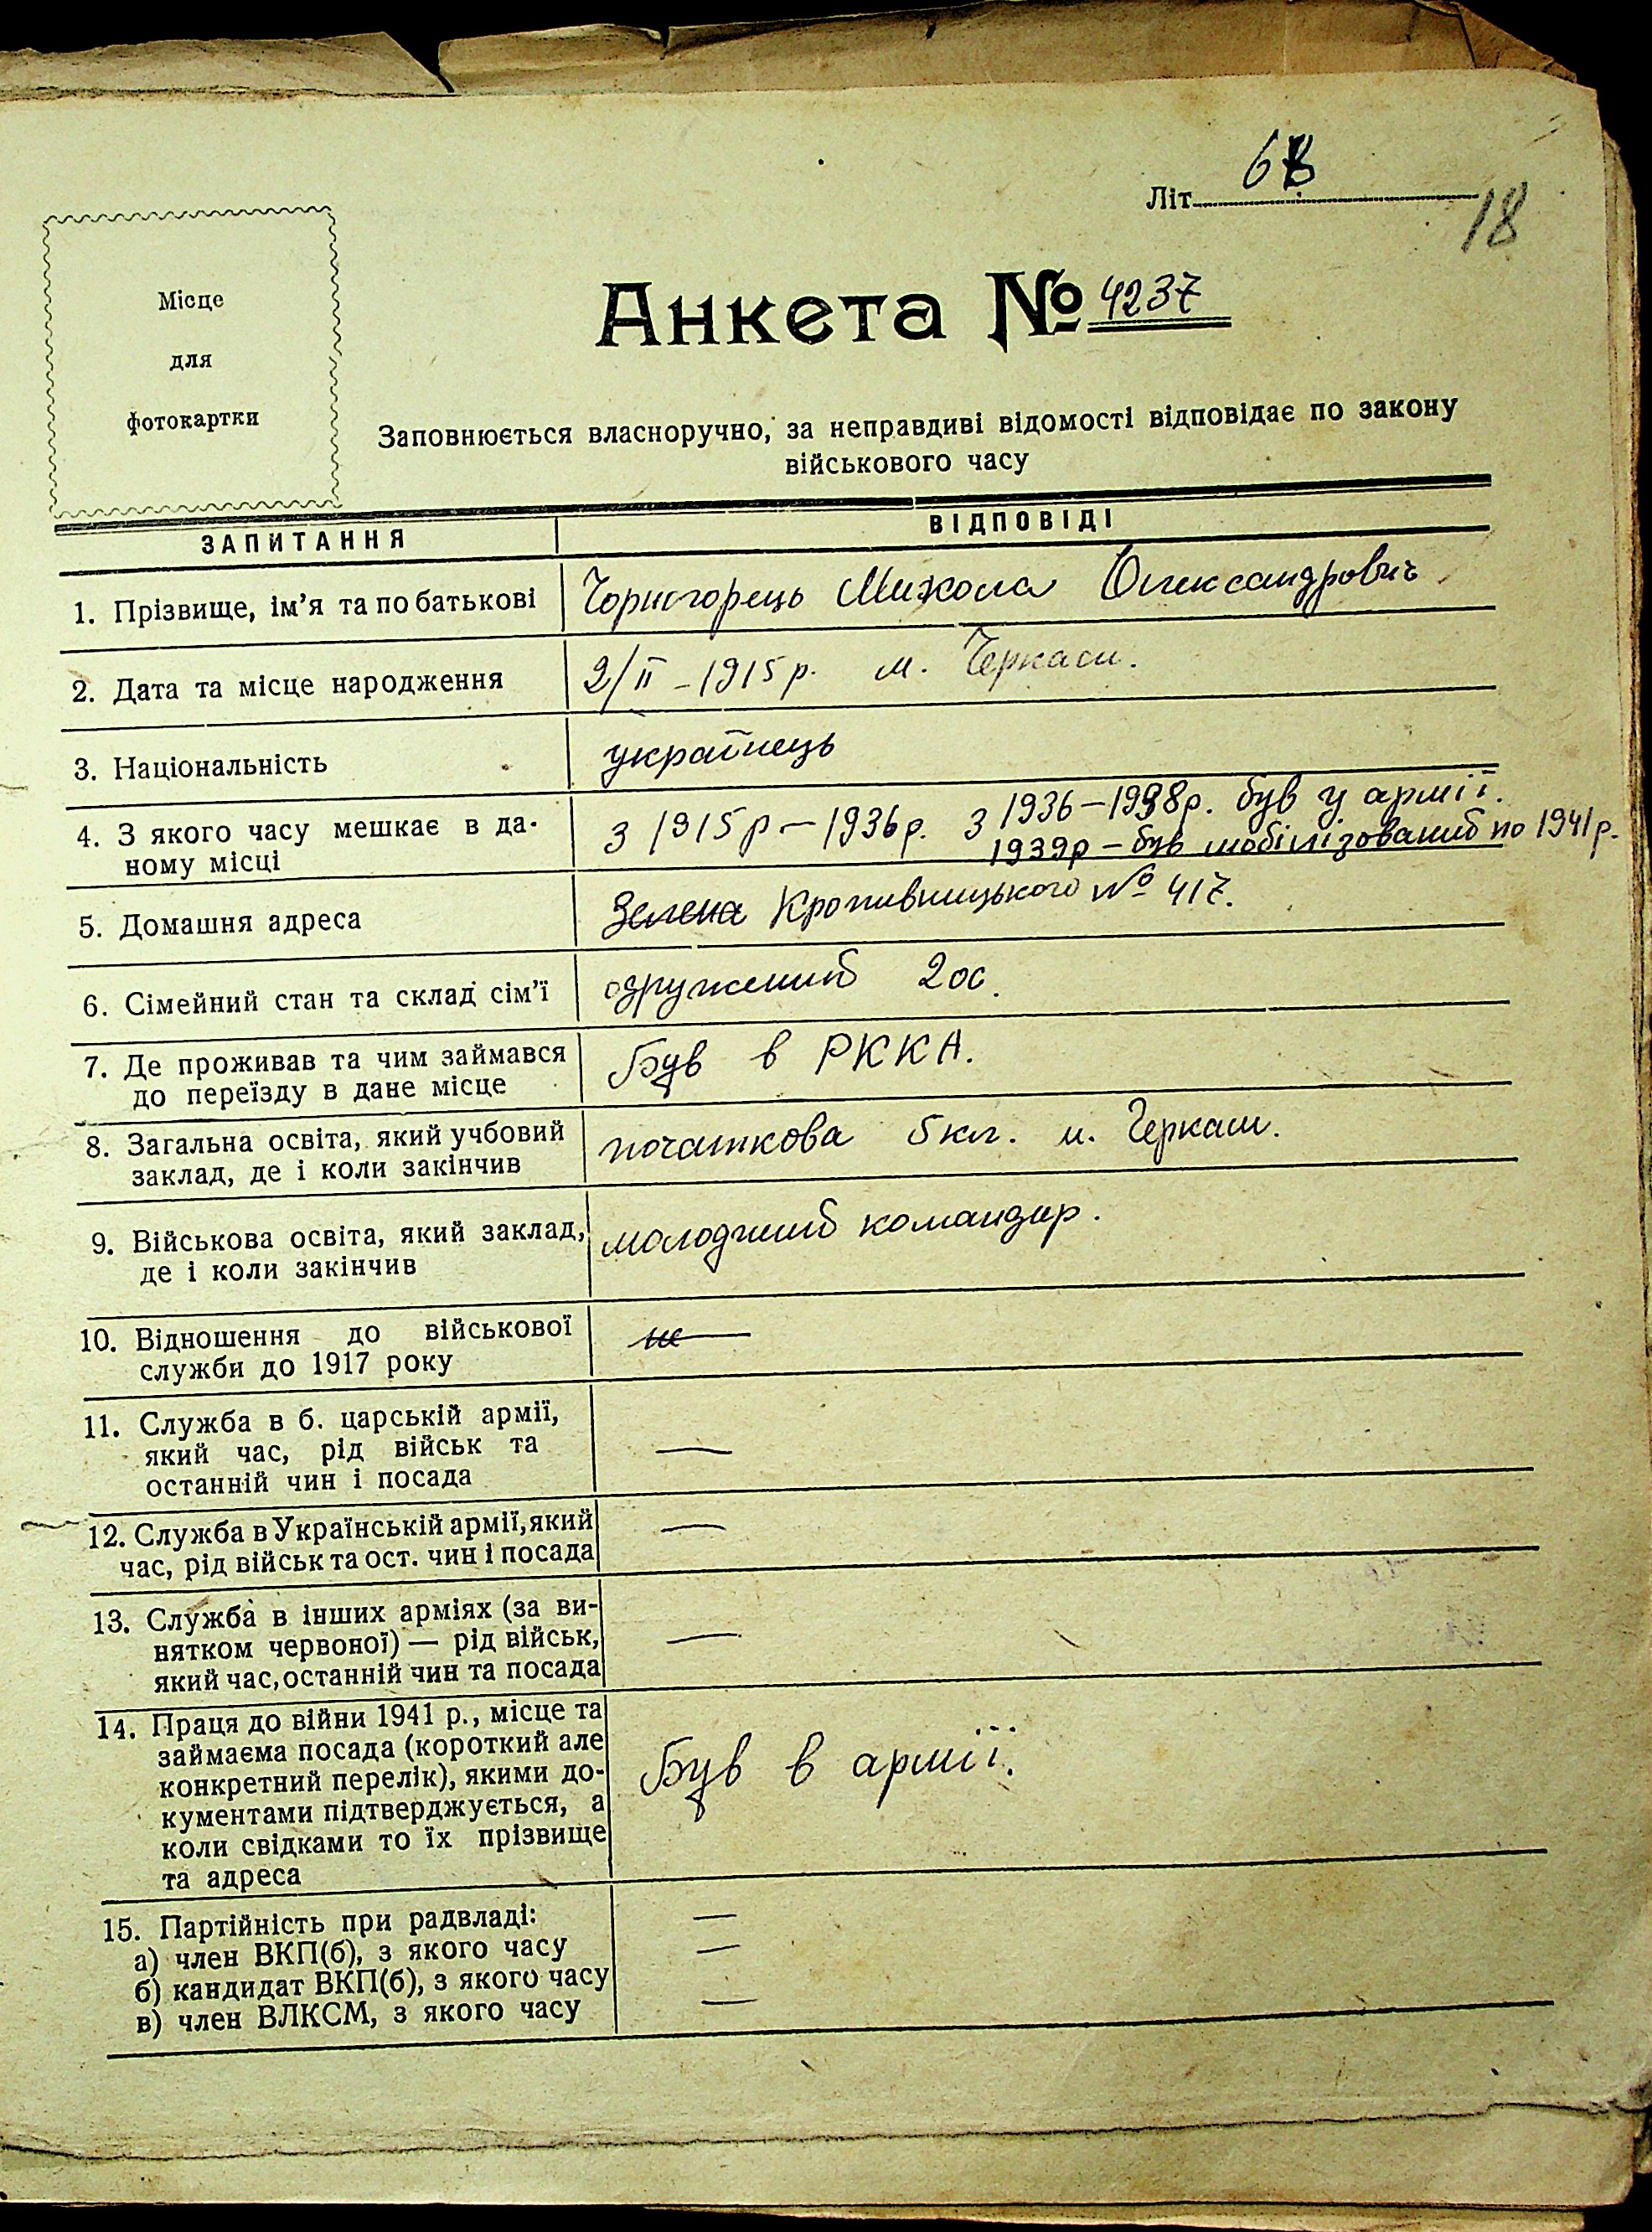 Літ. 6
18
Місце
для
фотокартки
Анкета № 4237
Заповнюється власноручно, за неправдиві відомості відповідає по закону
військового часу
ЗАПИТАННЯ ВІДПОВІДІ
1. Прізвище, ім'я та по батькові Чорногорець Микола Олександрович
2. Дата та місце народження 2/ІІ – 1915 р. м. Черкаси.
3. Національність українець
4. З якого часу мешкає в да- з 1915 р – 1936 р. з 1936 – 1938 р. був у армії.
ному місці 1939 р – був мобілізований по 1941 р.
5. Домашня адреса Зелена Кропивницького № 417.
6. Сімейний стан та склад сім'ї одружений 2 ос.
7. Де проживав та чим займався Був в РККА.
до переїзду в дане місце
8. Загальна освіта, який учбовий початкова 5 кл. м. Черкаси.
заклад, де і коли закінчив
9. Військова освіта, який заклад, молодший командир.
де і коли закінчив
10. Відношення до військової не —
служби до 1917 року
11. Служба в б. царській армії,
який час, рід військ та —
останній чин і посада
12. Служба в Українській армії, який —
час, рід військ та ост. чин і посада
13. Служба в інших арміях (за ви-
нятком червоної) — рід військ, —
який час, останній чин та посада
14. Праця до війни 1941 р., місце та
займаєма посада (короткий але
конкретний перелік), якими до- Був в армії.
кументами підтверджується, а
коли свідками то їх прізвище
та адреса
15. Партійність при радвладі: —
а) член ВКП(б), з якого часу —
б) кандидат ВКП(б), з якого часу
в) член ВЛКСМ, з якого часу —